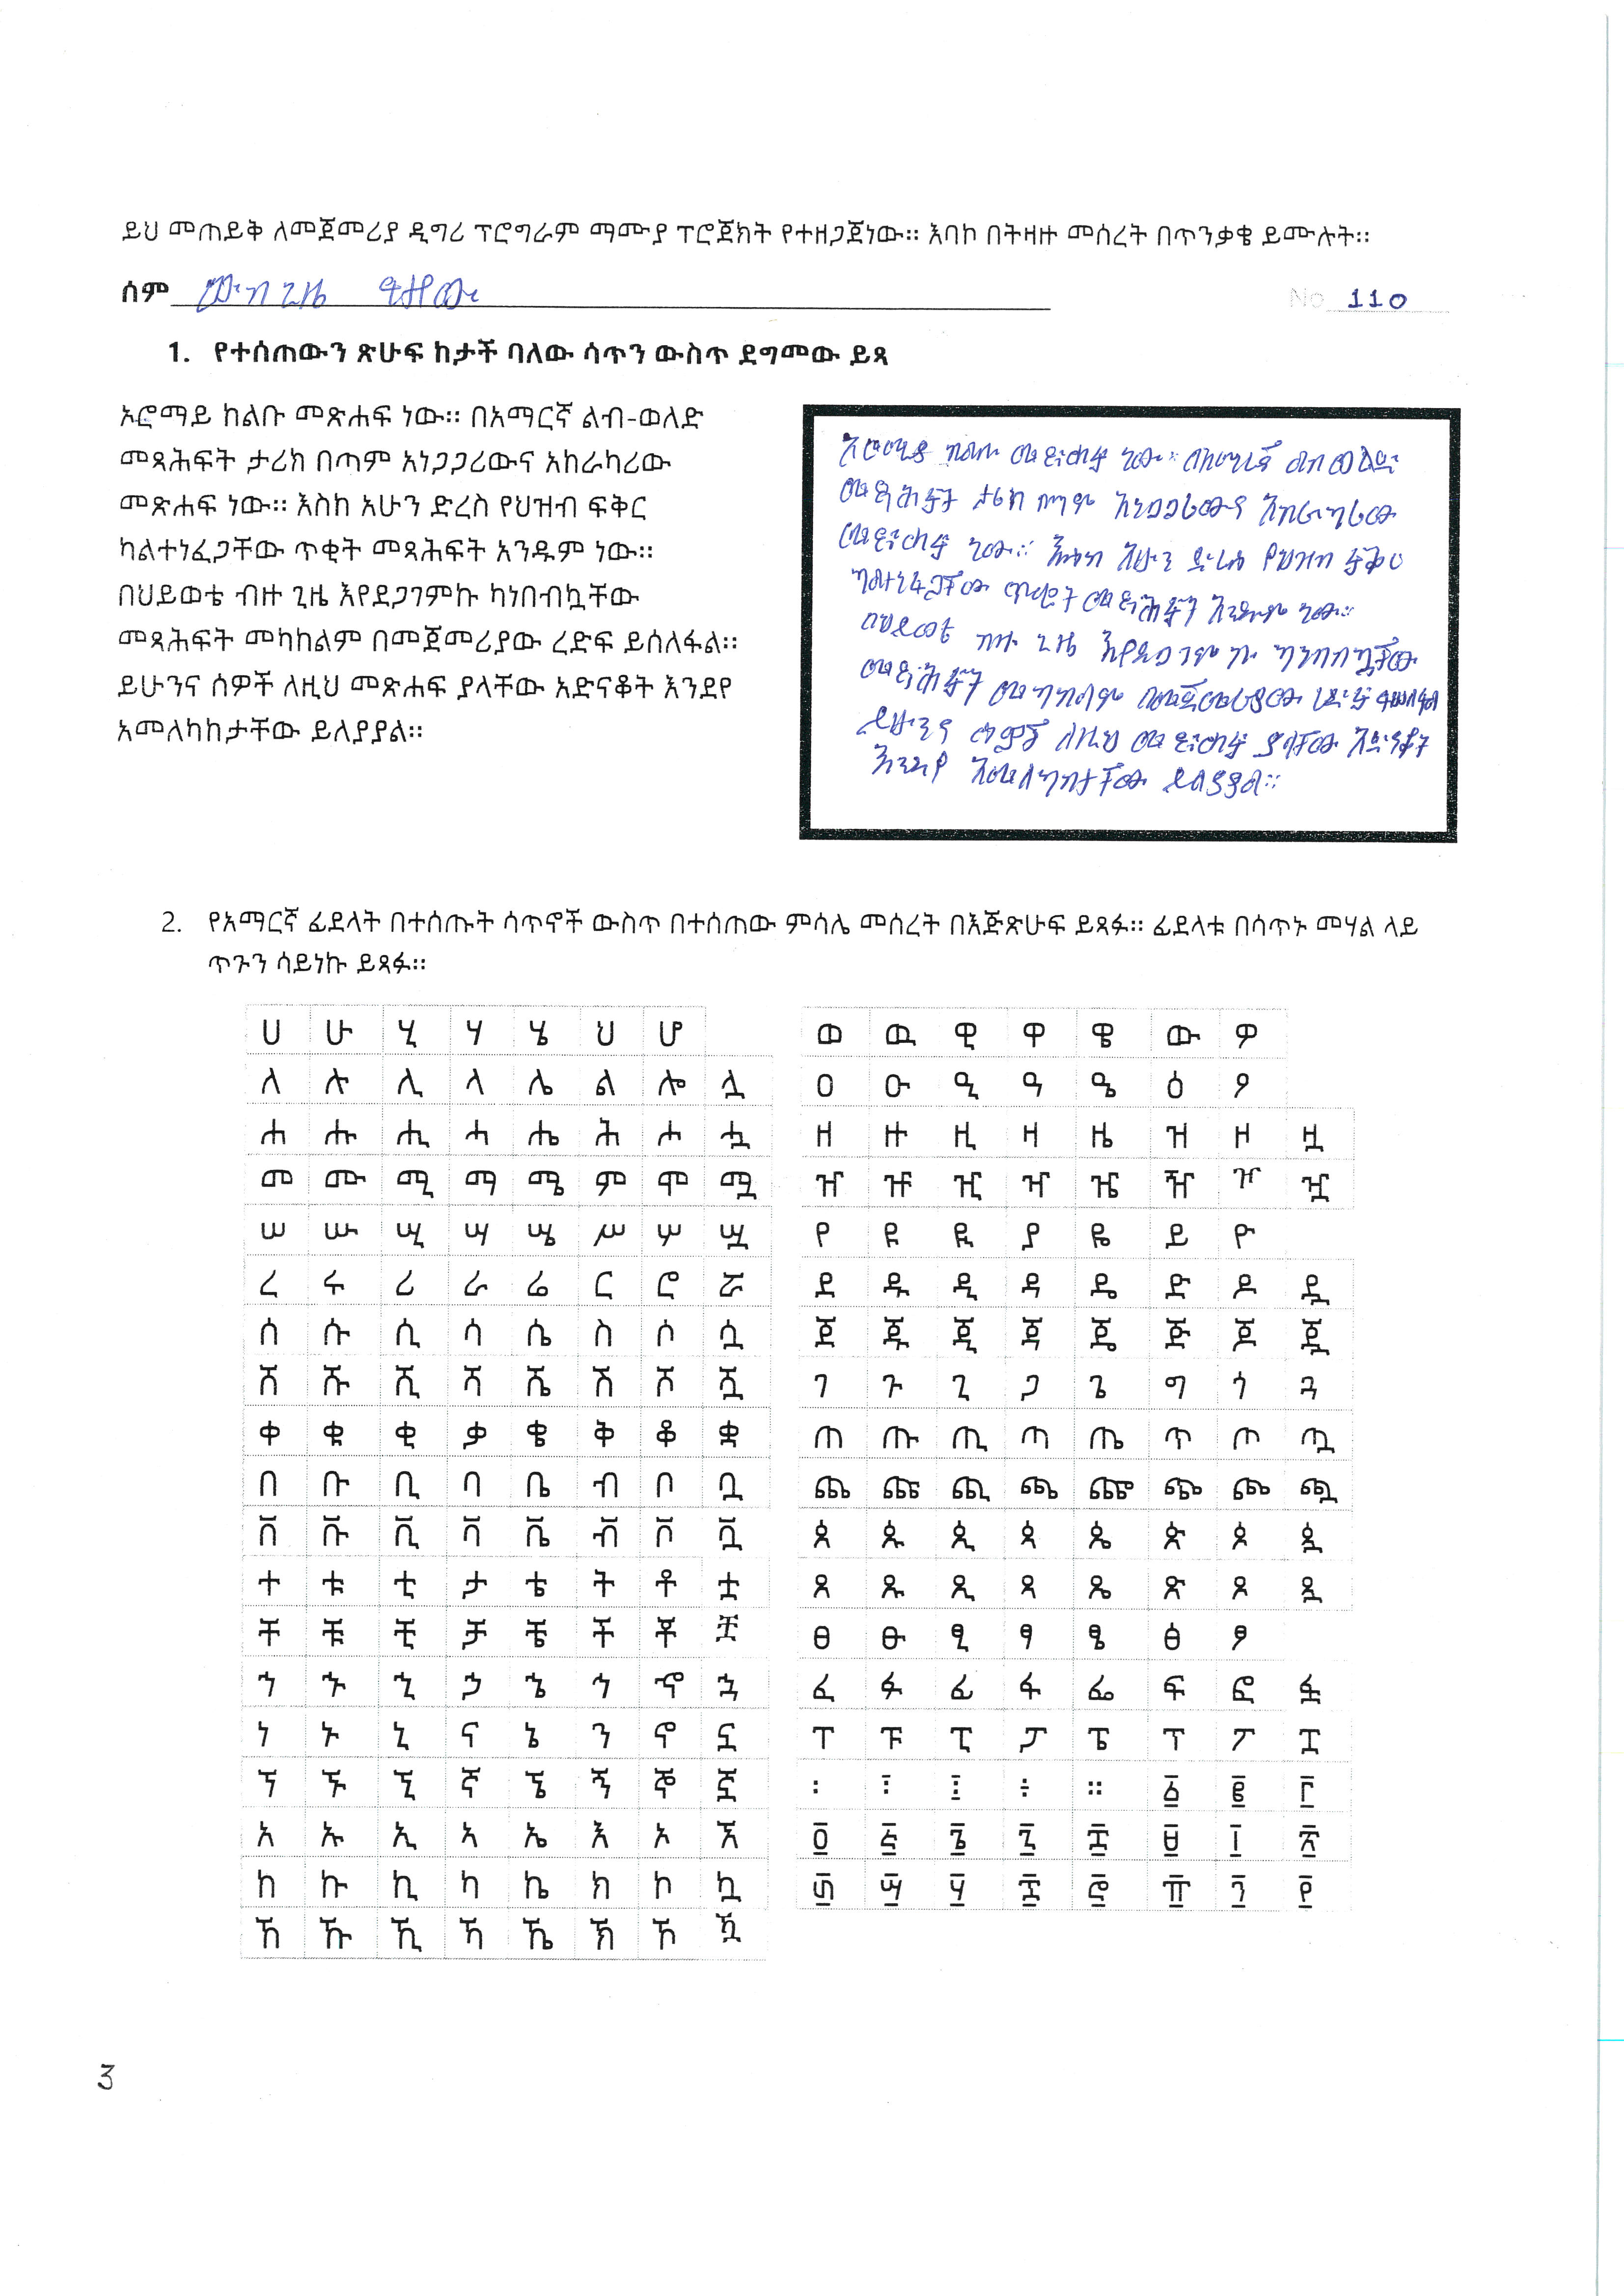 ይህ መጠይቅ ለመጀመሪያ ዲግሪ ፕሮግራም ማሙያ ፕሮጀክት የተዘጋጀነው። እባኮ በትዛዙ መሰረት በጥንቃቄ ይሙሉት።
ሰም
No 110
1. የተሰጠውን ጽሁፍ ከታች ባለው ሳጥን ውስጥ ደግመው ይጻ
ኦሮማይ ከልቡ መጽሐፍ ነው። በአማርኛ ልብ-ወለድ
መጻሕፍት ታሪክ በጣም አነጋጋሪውና አከራካሪው
መጽሐፍ ነው። እስከ አሁን ድረስ የህዝብ ፍቅር
ካልተነፈጋቸው ጥቂት መጻሕፍት አንዱም ነው።
በህይወቴ ብዙ ጊዜ እየደጋገምኩ ካነበብኳቸው
መጻሕፍት መካከልም በመጀመሪያው ረድፍ ይሰለፋል።
ይሁንና ሰዎች ለዚህ መጽሐፍ ያላቸው አድናቆት እንደየ
አመለካከታቸው ይለያያል።
መጽሐፍ ነው። በአማርኛ ልብ ወልድ
መጻሕፍት ታሪክ በጣም አነጋጋሪውና አከራካሪው
መጽሐፍ ነው። እስከ አሁን ድረስ የህዝብ ፍቅር
ካልተነፈጋቸው ጥቂት መጻሕፍት አንዱም ነው።
በህይወቴ ብዙ ጊዜ እየደጋገምኩ ካነበብኳቸው
መጻሕፍት መካከልም በመጀመሪያው ረድፍ
ይሁንና ሰዎች ለዚህ መጽሐፍ ያላቸው አድናቆት
እንደየ አመለካከታቸው ይለያያል።
2. የአማርኛ ፊደላት በተሰጡት ሳጥኖች ውስጥ በተሰጠው ምሳሌ መሰረት በእጅጽሁፍ ይጻፉ። ፊደላቱ በሳጥኑ መሃል ላይ
ጥጉን ሳይነኩ ይጻፉ።
ሀ ሁ ሂ ሃ ሄ ህ ሆ
ለ ሉ ሊ ላ ሌ ል ሎ ሏ
ሐ ሑ ሒ ሓ ሔ ሕ ሖ ሗ
መ ሙ ሚ ማ ሜ ም ሞ ሟ
ሠ ሡ ሢ ሣ ሤ ሥ ሦ ሧ
ረ ሩ ሪ ራ ሬ ር ሮ ሯ
ሰ ሱ ሲ ሳ ሴ ስ ሶ ሷ
ሸ ሹ ሺ ሻ ሼ ሽ ሾ ሿ
ቀ ቁ ቂ ቃ ቄ ቅ ቆ ቋ
በ ቡ ቢ ባ ቤ ብ ቦ ቧ
ቨ ቩ ቪ ቫ ቬ ቭ ቮ ቯ
ተ ቱ ቲ ታ ቴ ት ቶ ቷ
ቸ ቹ ቺ ቻ ቼ ች ቾ ቿ
ኀ ኁ ኂ ኃ ኄ ኅ ኆ ኋ
ነ ኑ ኒ ና ኔ ን ኖ ኗ
ኘ ኙ ኚ ኛ ኜ ኝ ኞ ኟ
አ ኡ ኢ ኣ ኤ እ ኦ ኧ
ከ ኩ ኪ ካ ኬ ክ ኮ ኳ
ኸ ኹ ኺ ኻ ኼ ኽ ኾ ዃ
ወ ዉ ዊ ዋ ዌ ው ዎ
ዐ ዑ ዒ ዓ ዔ ዕ ዖ
ዘ ዙ ዚ ዛ ዜ ዝ ዞ ዟ
ዠ ዡ ዢ ዣ ዤ ዥ ዦ ዧ
የ ዩ ዪ ያ ዬ ይ ዮ
ደ ዱ ዲ ዳ ዴ ድ ዶ ዷ
ጀ ጁ ጂ ጃ ጄ ጅ ጆ ጇ
ገ ጉ ጊ ጋ ጌ ግ ጎ ጓ
ጠ ጡ ጢ ጣ ጤ ጥ ጦ ጧ
ጨ ጩ ጪ ጫ ጬ ጭ ጮ ጯ
ጰ ጱ ጲ ጳ ጴ ጵ ጶ ጷ
ጸ ጹ ጺ ጻ ጼ ጽ ጾ ጿ
ፀ ፁ ፂ ፃ ፄ ፅ ፆ
ፈ ፉ ፊ ፋ ፌ ፍ ፎ ፏ
ፐ ፑ ፒ ፓ ፔ ፕ ፖ ፗ
፡ ፤ ፧ ÷ ። ፩ ፪ ፫
፬ ፭ ፮ ፯ ፰ ፱ ፲ ፳
፴ ፵ ፶ ፷ ፸ ፹ ፺ ፻
3